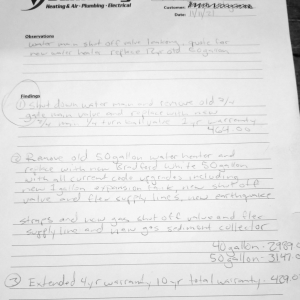 Heating & Air - Plumbing - Electrical
Customer:
Date:
Observations
water main shut off valve leaking, quote for
new water heater replace 12yr old 50 gallon
Findings
① Shut down water main and remove old 3/4
gate main valve and replace with new
3/4 turn ball valve 2yr warranty
② Remove old 50 gallon water heater and
replace with new Bradford White 50 gallon
with all current code upgrades including
new 2 gallon expansion tank, new shut off
valve and flex supply lines, new earthquake
straps and new gas shut off valve and flex
supply line and new gas sediment collector
40 gallon - 2989.0
50 gallon - 3147.0
③ Extended 4yr warranty 10yr total warranty - 489.0